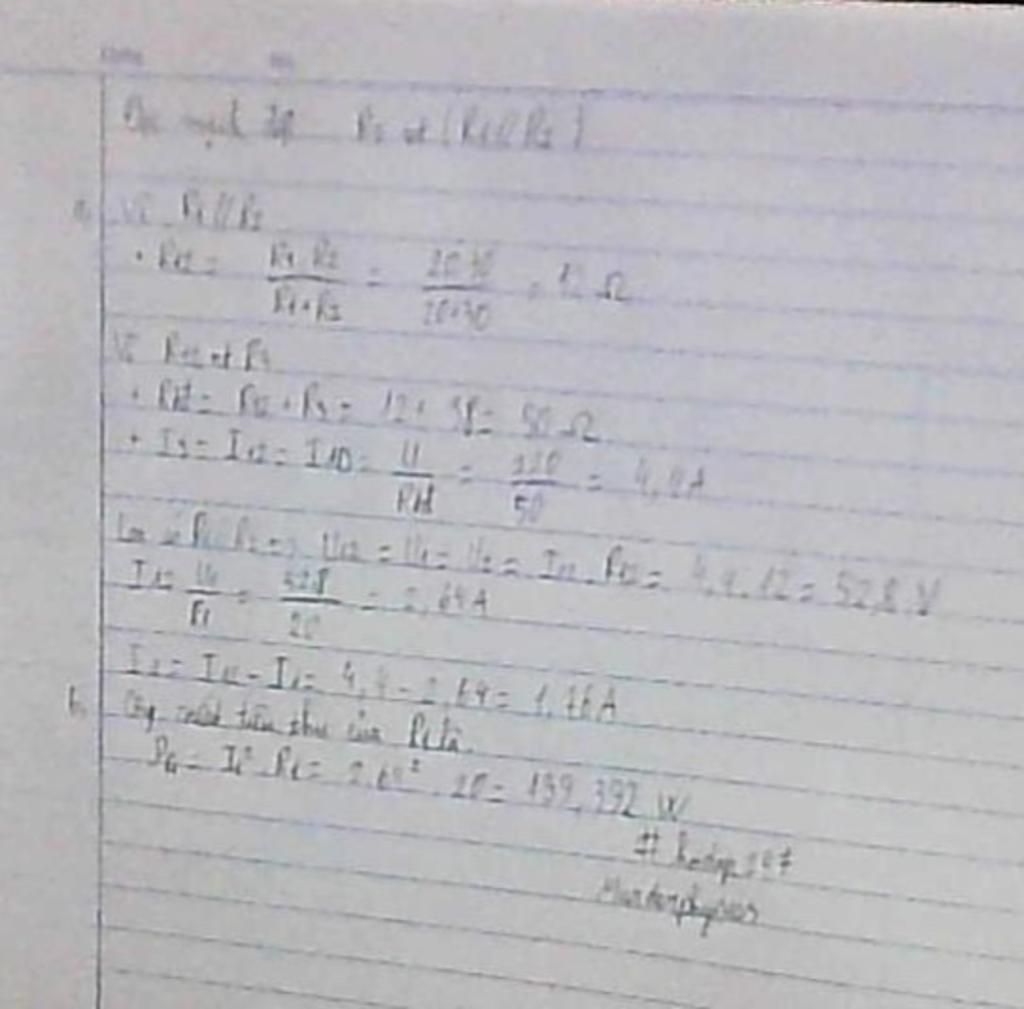 R3 nt (R1//R2)
a, Vì R1//R2
• R12 = R1.R2 / R1+R2 = 20.30 / 20+30 = 12 Ω
Vì R12 nt R3
+ RAB = R12 + R3 = 12 + 38 = 50 Ω
+ I3 = I12 = IAB = U / RAB = 220 / 50 = 4,4A
R1 R2 => U12 = U1 = U2 = I12 . R12 = 4,4.12 = 52,8 V
I1 = U1 / R1 = 52,8 / 20 = 2,64A
I2 = I12 - I1 = 4,4 - 2,64 = 1,76A
b, Công suất tiêu thụ của R1 là
= I1² . R1 = 2,64² . 20 = 139,392 W